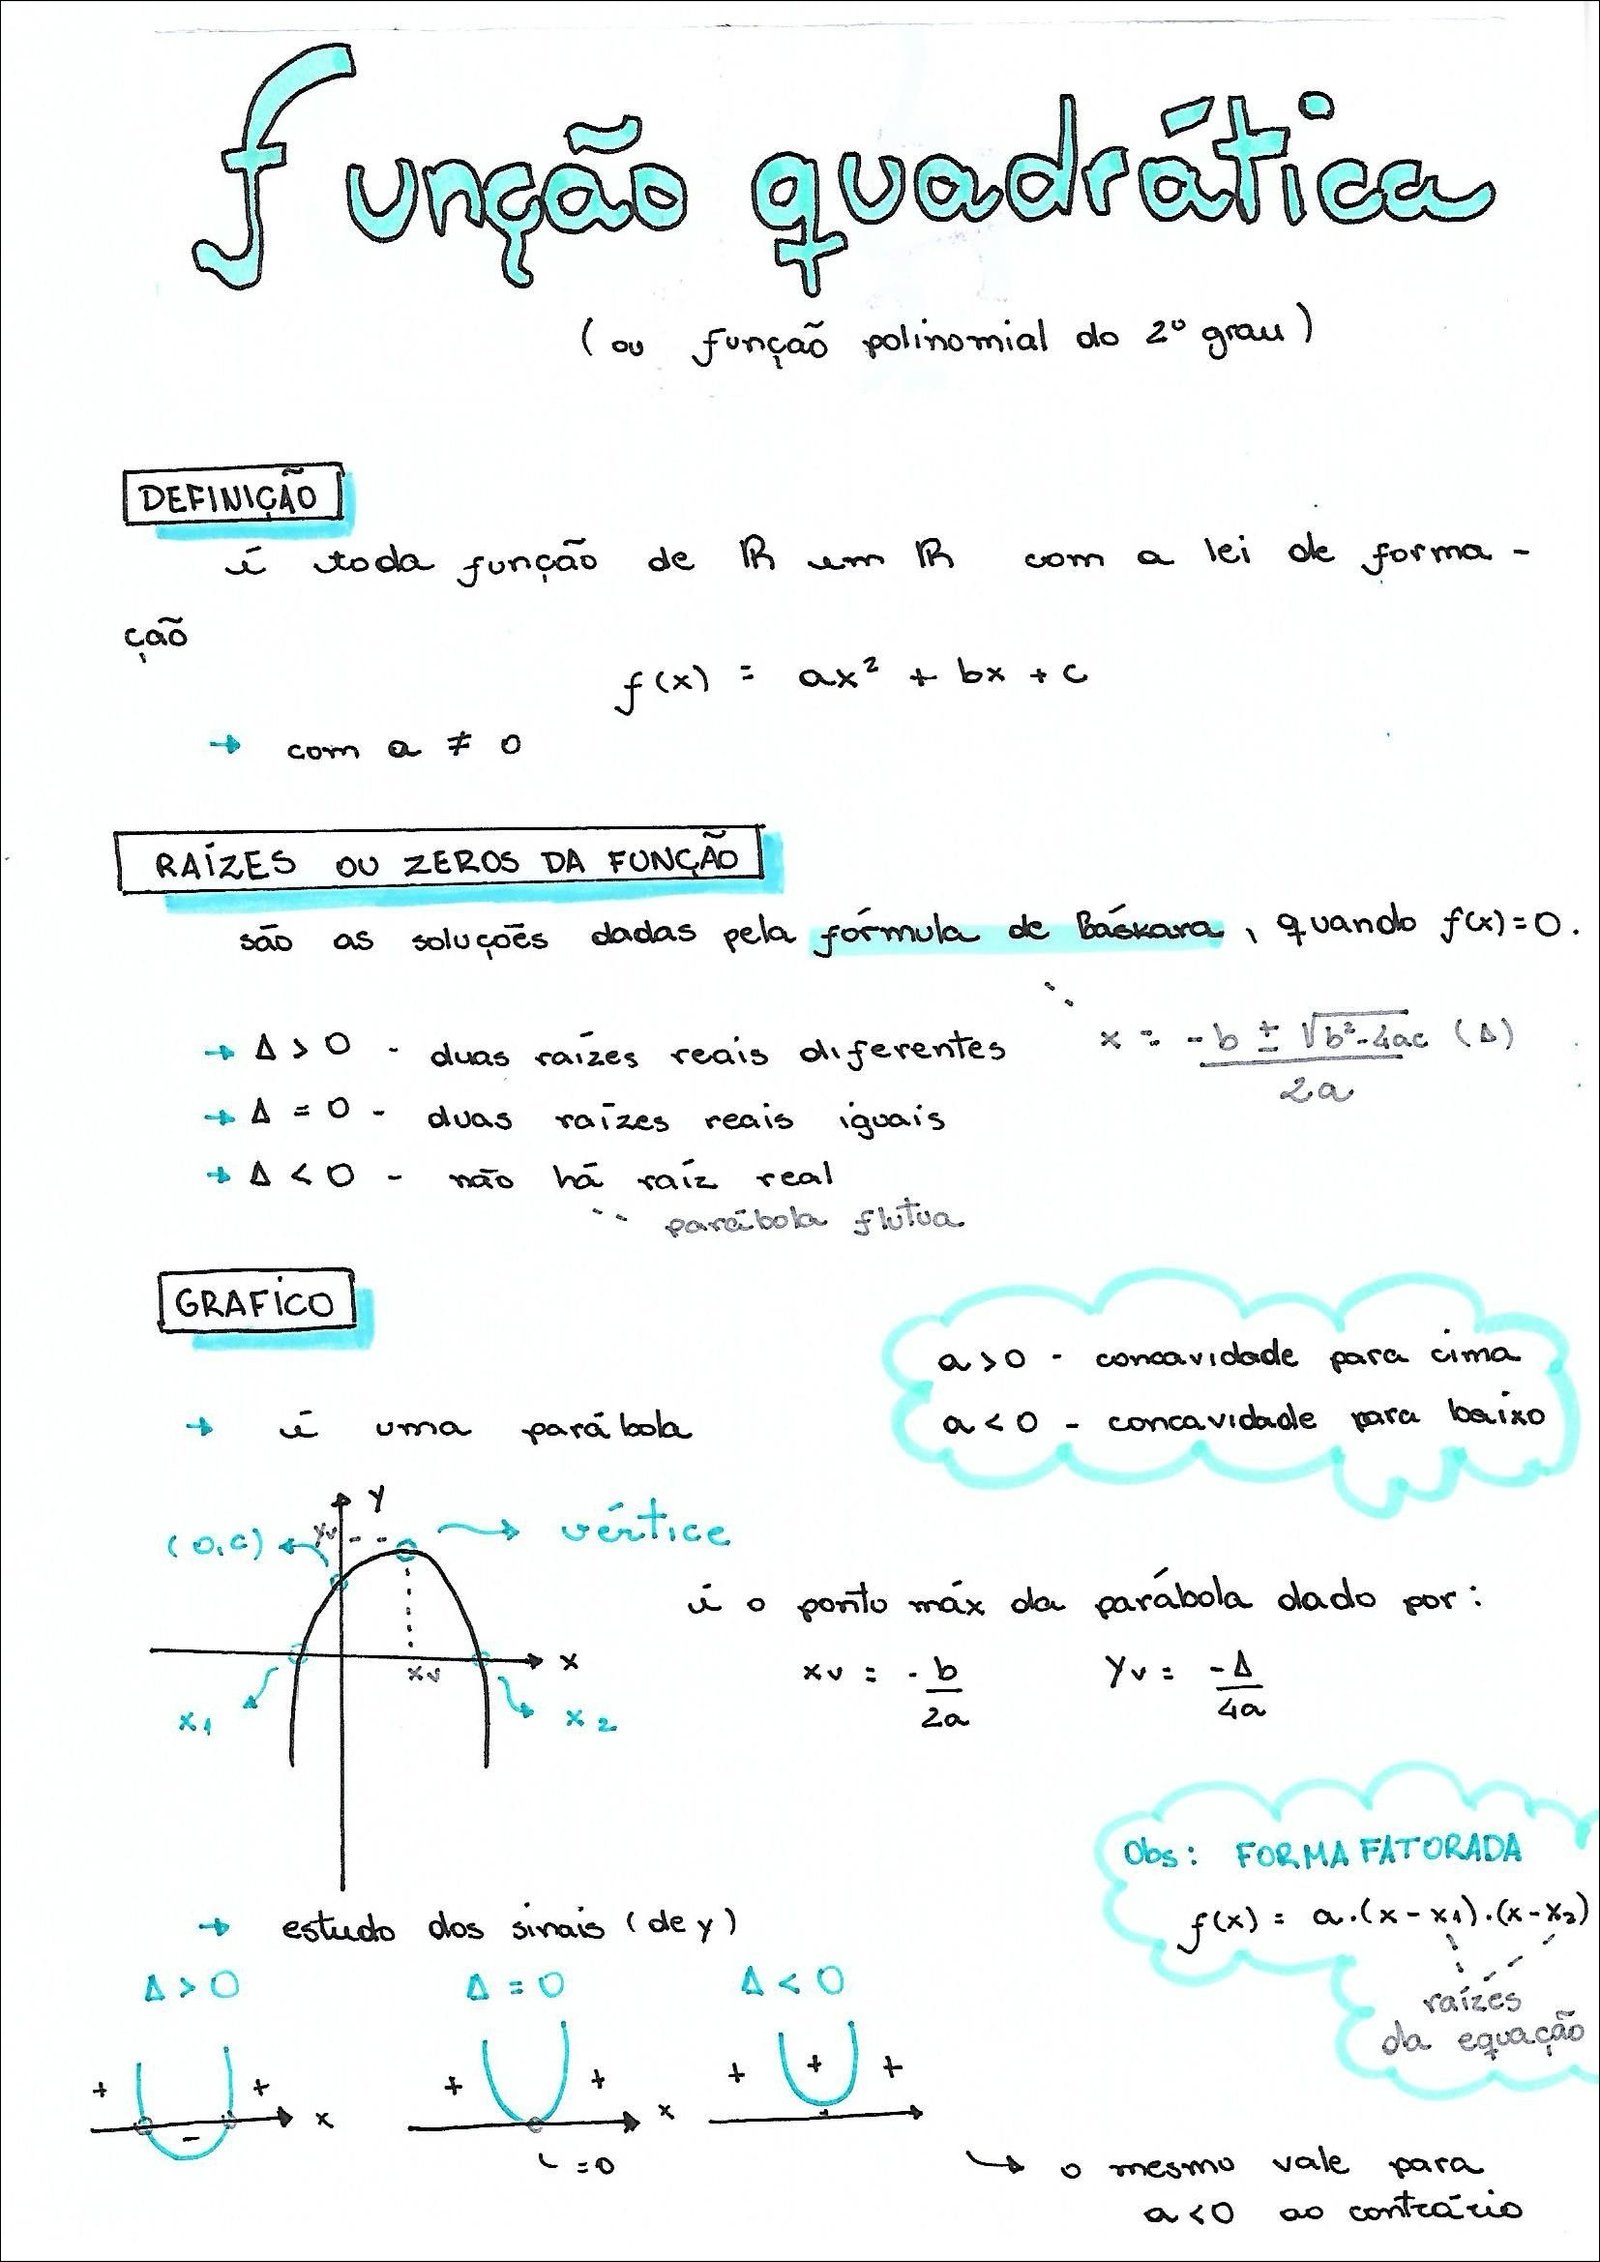 função quadrática
(ou função polinomial do 2º grau)
DEFINIÇÃO
é toda função de ℝ em ℝ com a lei de forma-
ção
f(x) = ax² + bx + c
→ com a ≠ 0
RAÍZES OU ZEROS DA FUNÇÃO
são as soluções dadas pela fórmula de Báskara, quando f(x)=0.
x = -b ± √b²-4ac (Δ)
2a
→ Δ > 0 - duas raízes reais diferentes
→ Δ = 0 - duas raízes reais iguais
→ Δ < 0 - não há raíz real
parábola flutua
GRÁFICO
a > 0 - concavidade para cima
a < 0 - concavidade para baixo
→ é uma parábola
y
yv
(0,c)
vértice
x
xv
x1
x2
é o ponto máx da parábola dado por:
xv = -b
2a
yv = -Δ
4a
Obs: FORMA FATORADA
f(x) = a.(x-x1).(x-x2)
raízes
da equação
→ estudo dos sinais (de y)
Δ > 0
Δ = 0
Δ < 0
+ + x
-
+ + x
=0
+ + +
↳ o mesmo vale para
a<0 ao contrário